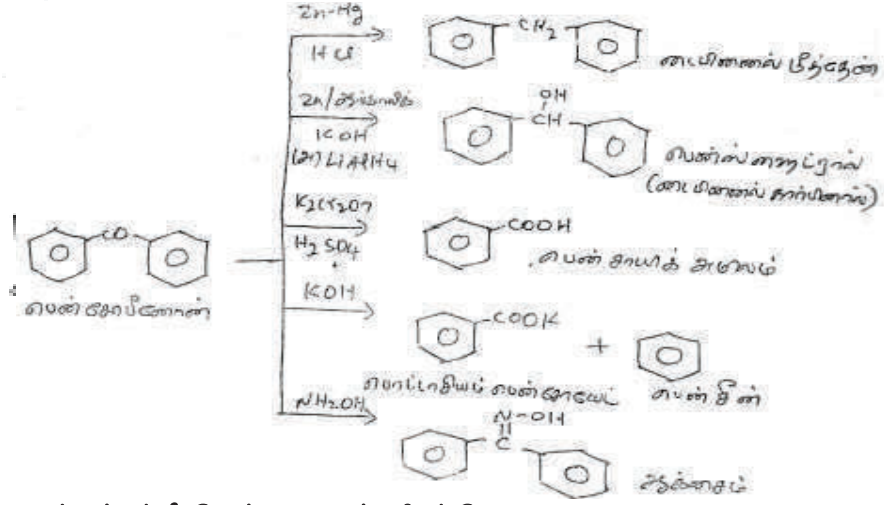 Zn-Hg
HCl
CH2
டைபினைல் மீத்தேன்
Zn/ஆல்கஹாலிக்
KOH
(அ) LiAlH4
OH
CH
பென்ஸ்ஹைட்ரால்
(டைபினைல் கார்பினால்)
K2Cr2O7
H2SO4
+
COOH
பென்சாயிக் அமிலம்
CO
பென்சோபீனோன்
KOH
COOK
+
பொட்டாசியம் பென்சோயேட்
பென்சீன்
NH2OH
N-OH
C
ஆக்சைம்